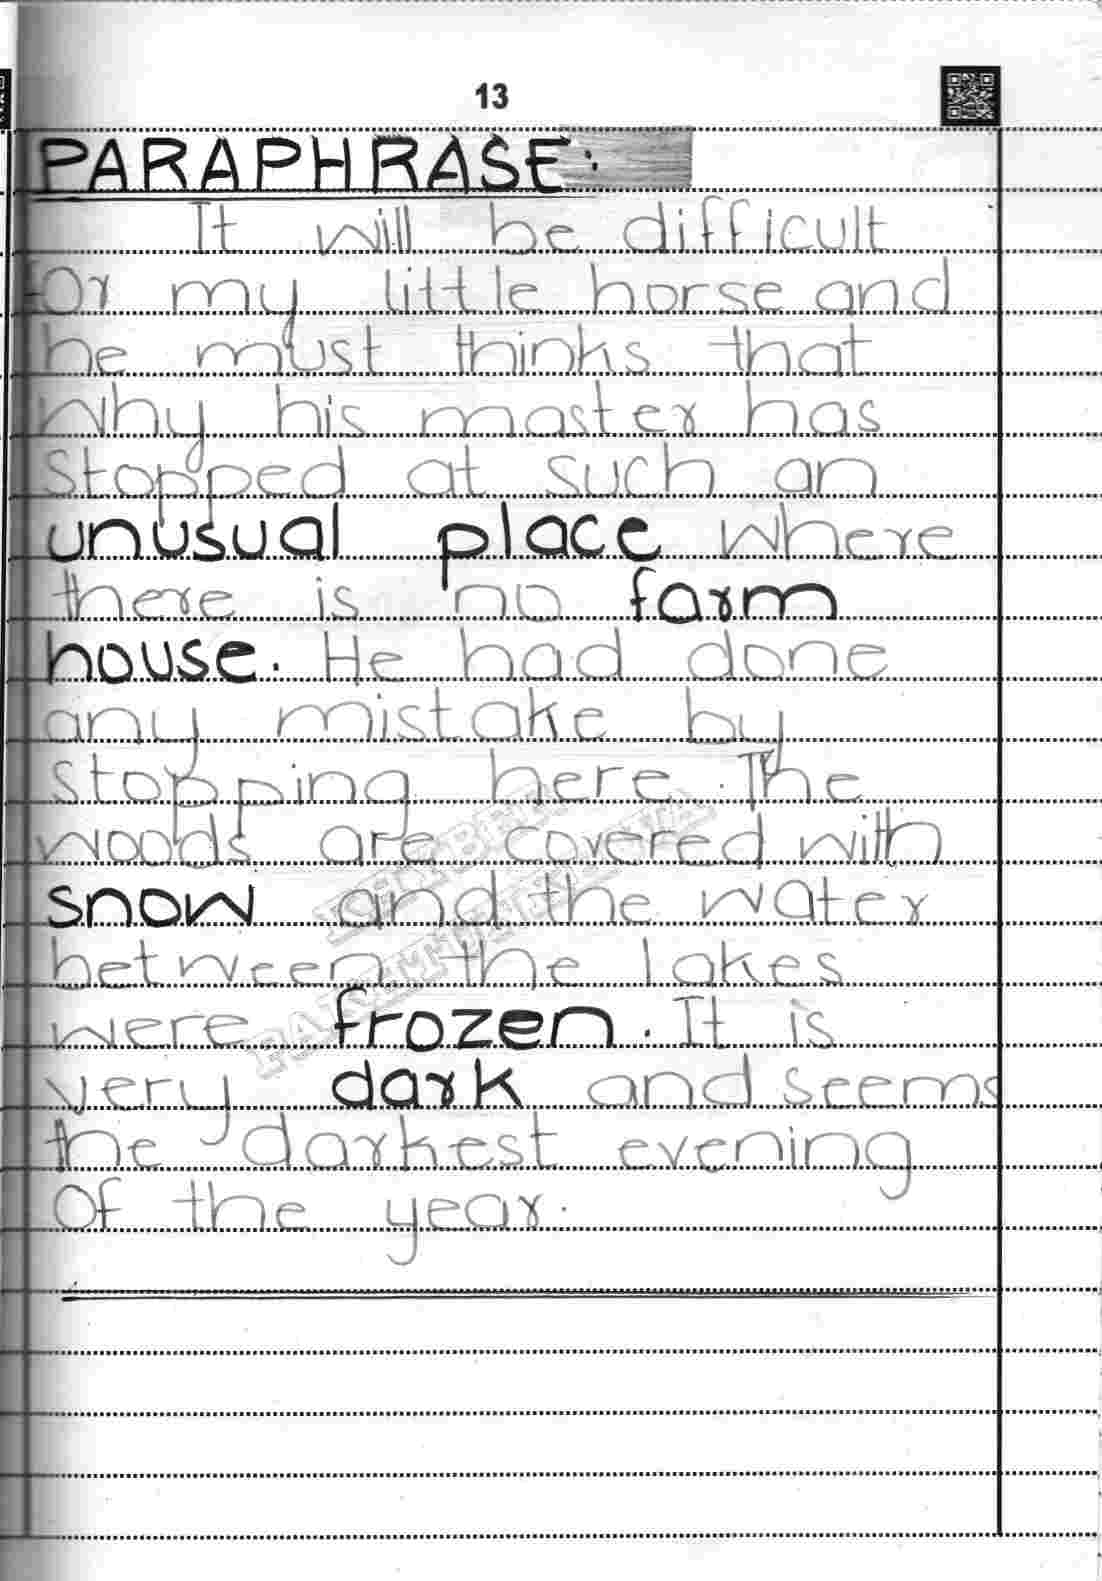 13
PARAPHRASE:
It will be difficult
for my little horse and
he must thinks that
why his master has
stopped at such an
unusual place where
there is no farm
house. He had done
any mistake by
stopping here. The
woods are covered with
snow and the water
between the lakes
were frozen. It is
very dark and seems
the darkest evening
of the year.
KHYBER
PAKHTUNKHWA